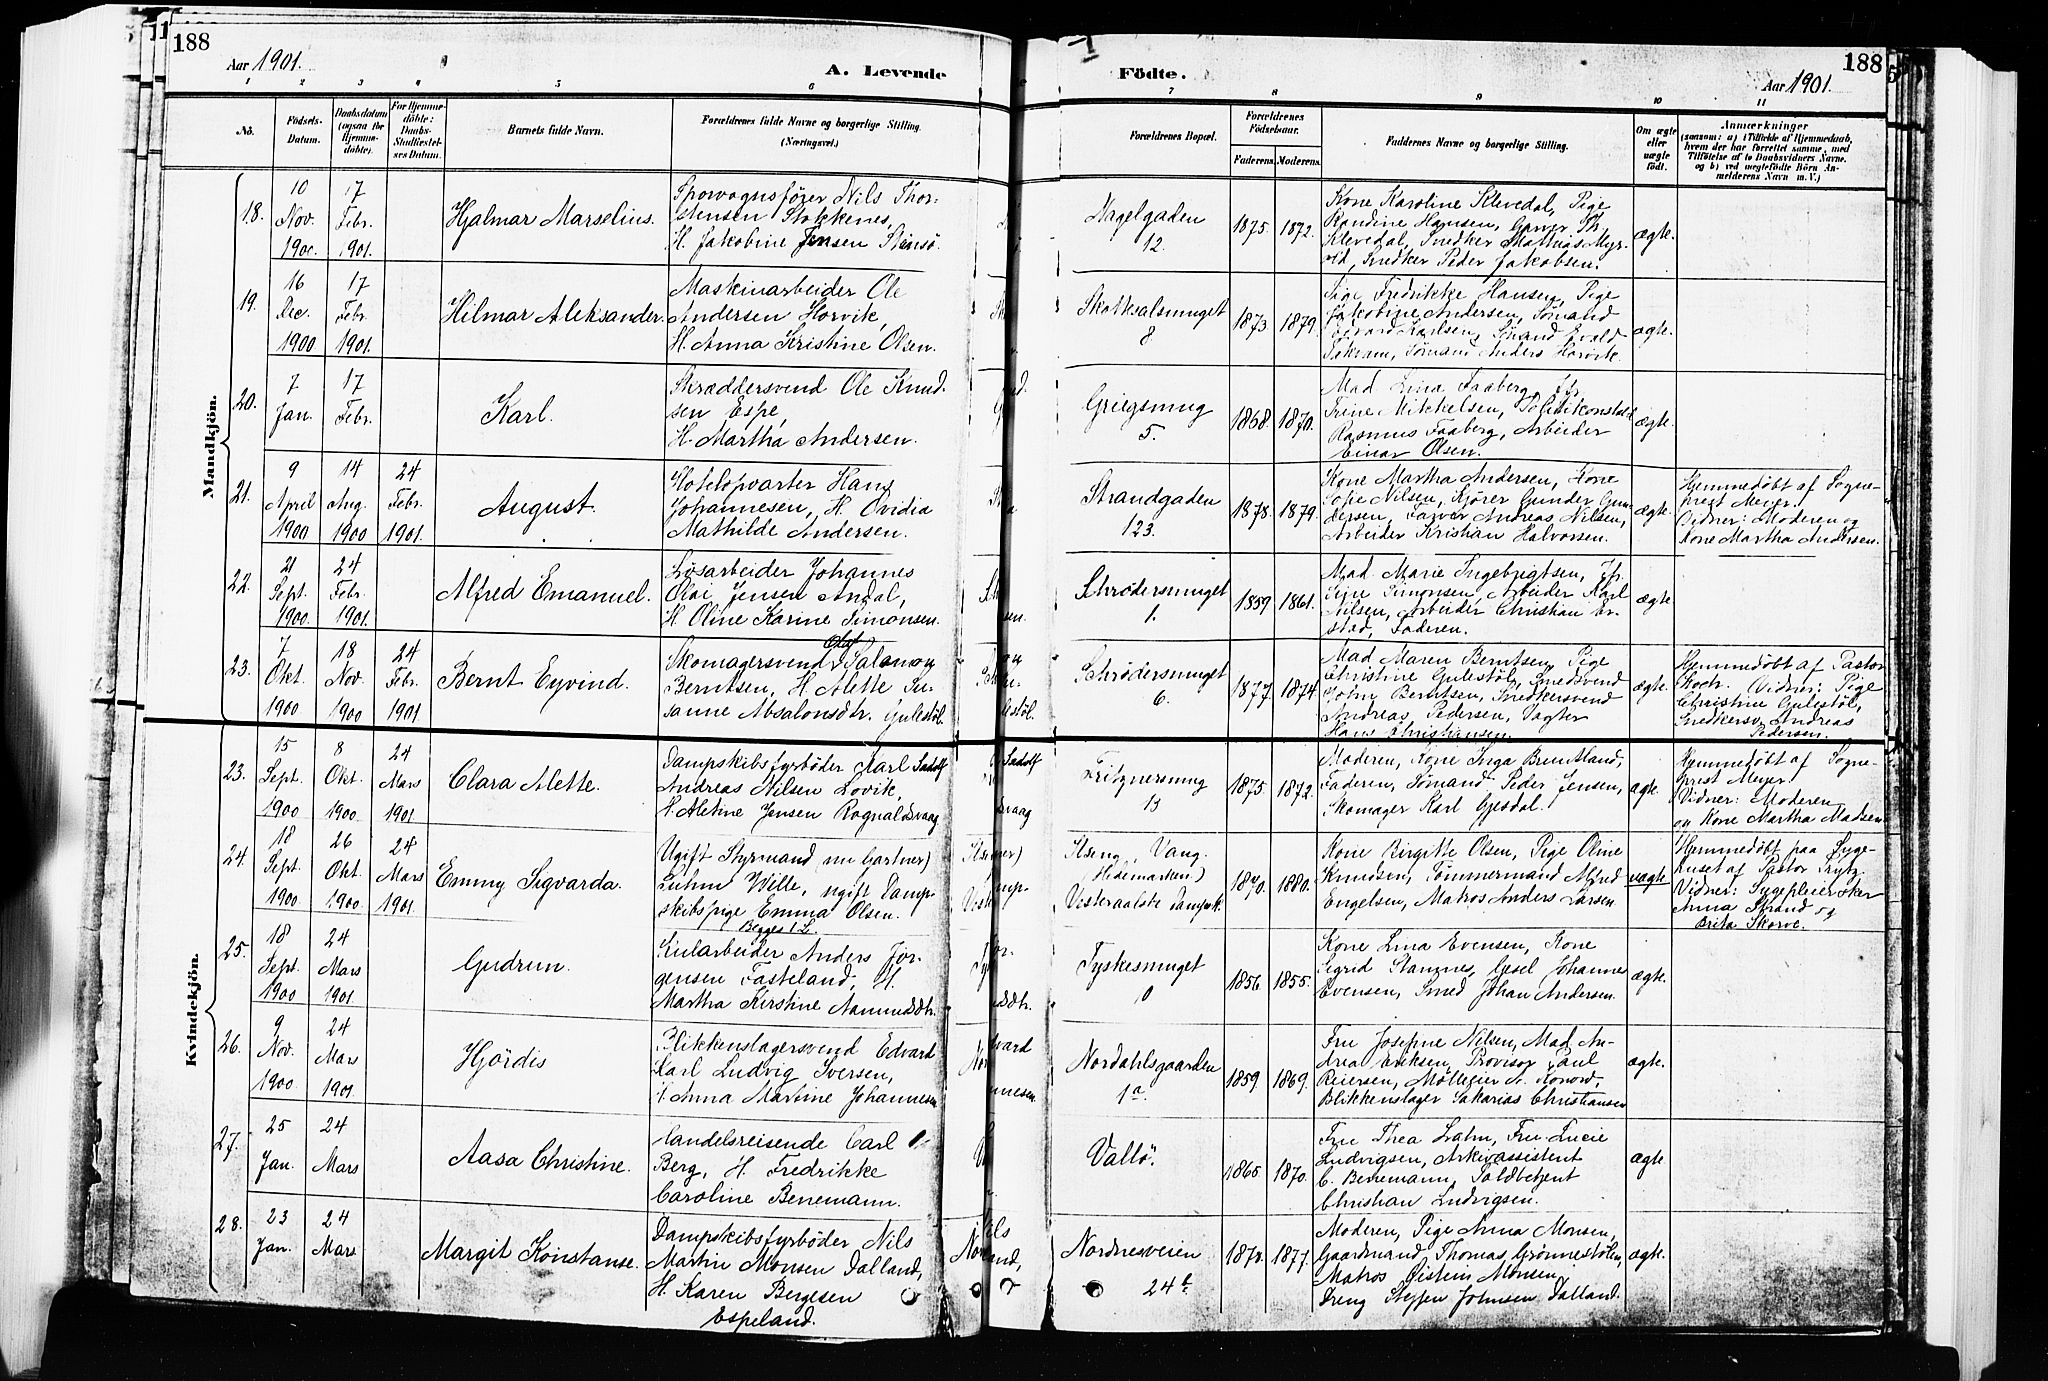 188
Aar 1901.
A. Levende
Födte.
188
Aar 1901.
1 2 3 4 5 6 7 8 9 10 11
No.
Födsels-Datum.
Daabsdatum (ogsaa for Hjemmedöbte).
For Hjemmedöbte: Daabs-Stadfæstelses Datum.
Barnets fulde Navn.
Forældrenes fulde Navne og borgerlige Stilling.
(Næringsvei.)
Forældrenes Bopæl.
Forældrenes Födselsaar.
Faderens. Moderens.
Faddernes Navne og borgerlige Stilling.
Om ægte eller uægte födt.
Anmærkninger
(saasom: a) i Tilfælde af Hjemmedaab,
hvem der har forrettet samme, med
Tilföielse af to Daabsvidners Navne.
og b) ved uægtefödte Börn Anmelderens Navn m. V.)
Mandkjön.
18.
10 Nov. 1900
17 Febr. 1901.
Hjalmar Marselius.
Sporvognsfører Nils Thor-
stensen Stokkenes,
H. Jakobine Jensen Stensø
Nagelgaden
12.
1875. 1872.
Kone Karoline Klevedal, Pige
Randine Hansen, Garver Th.
Klevedal, Snedker Mathias Myr-
vld, Snedker Peder Jakobsen.
ægte.
19.
16 Dec. 1900
17 Febr. 1901.
Hilmar Aleksander.
Maskinarbeider Ole
Andersen Horvik,
H. Anna Kristine Olsen.
Skottsalsmuget
8
1873. 1879.
Pige Fredrikke Hansen, Pige
Jakobine Andersen, Sømand
Edvard Karlsen, Sømand Evald
Sekvam, Sømand Anders Horvik
ægte.
20.
7 Jan.
17 Febr.
Karl.
Skræddersvend Ole Knud-
sen Espe,
H. Martha Andersen.
Griegsmug
5.
1868. 1870.
Mad. Lina Faaberg, Jfr.
Trine Mikkelsen, Politikonstabel
Rasmus Faaberg, Arbeider
Einar Olsen.
ægte.
21.
9 April 1900
14 Aug. 1900
24 Febr. 1901.
August.
Hotelopvarter Hans
Johannesen, H. Ovidia
Mathilde Andersen.
Strandgaden
123.
1878. 1879.
Kone Martha Andersen, Kone
Sofie Nilsen, Kjører Gunder Gun-
dersen, Farver Andreas Nilsen,
Arbeider Kristian Halvorsen.
ægte.
Hjemmedøbt af Sogne-
prest Meyer.
Vidner: Moderen og
Kone Martha Andersen.
22.
21 Sept. 1900.
24 Febr. 1901.
Alfred Emanuel.
Løsarbeider Johannes
Olai Jensen Andal,
H. Oline Karine Simonsen.
Schrødersmuget
1.
1859. 1861.
Mad. Marie Ingebrigtsen, Jfr.
Sine Simonsen, Arbeider Karl
Nilsen, Arbeider Christian Er-
stad, Faderen.
ægte
23.
7 Okt. 1900
18 Nov. 1900
24 Febr. 1901
Bernt Eyvind.
Skomagersvend Olaf Salamon
Berntsen, H. Alette Su-
sanne Absalonsdtr. Gulestøl.
Schrødersmuget
6.
1877. 1874.
Mad. Maren Berntsen, Pige
Christine Gulestøl, Smedsvend
John Berntsen, Snedkersvend
Andreas Pedersen, Vagter
Hans Christiansen.
ægte.
Hjemmedøbt af Pastor
Koch. Vidner: Pige
Christine Gulestøl,
Snedkersv. Andreas
Pedersen.
Kvindekjön.
23.
15 Sept. 1900
8 Okt. 1900
24 Mars 1901
Clara Alette.
Dampskibsfyrbøder Karl Ladolf
Andreas Nilsen Lovik,
H. Aletine Jensen Rognaldsvaag
Fritznersmug
13
1875. 1872.
Moderen, Kone Inga Bruntland,
Faderen, Sømand Peder Jensen,
Skomager Karl Gjesdal.
ægte.
Hjemmedøbt af Sogne-
prest Meyer.
Vidner: Moderen
og Kone Martha Madsen
24.
18 Sept. 1900
26 Okt. 1900.
24 Mars 1901.
Emmy Sigvarda.
Ugift Styrmand (nu Gartner)
Wille, ugift Damp-
skibspige Emma Olsen.
Begges 1. L.
Ilseng, Vang.
(Hedemarken.)
Vesteraalske Dampsk.
1870. 1880.
Kone Birgitte Olsen, Pige Oline
Knudsen, Tømmermand Alfred
Engelsen, Matros Anders Larsen
uægte
Hjemmedøbt paa Syge-
huset af Pastor Prytz.
Vidner: Sygepleiersker
Anna Strand og
Brita Skorve.
25.
18 Sept. 1900
24 Mars 1901.
Gudrun.
Anders Jør-
gensen Fasteland, H.
Martha Kirstine Aamundsdtr.
Tyskesmuget
1856 1855.
Kone Lina Evensen, Kone
Sigrid Stamnes, Johannes
Evensen, Smed Johan Andersen
ægte.
26.
9 Nov. 1900
24 Mars 1901.
Hjørdis
Blikkenslagersvend Edvard
Karl Ludvig Iversen,
H. Anna Martine Johannesen
Nordahlsgaarden
1a.
1859. 1869.
Fru Josefine Nilsen, Mad. An-
drea Eriksen, Provisor Paul
Reiersen, Møllegier A. Konow,
Blikkenslager Sakarias Christiansen
ægte.
27.
25 Jan.
24 Mars
Aasa Christine.
Handelsreisende Carl
Berg, H. Fredrikke
Caroline Benemann.
Vallø.
1865. 1870.
Fru Thea Lahn, Fru Lucie
Ludvigsen, Arkivassistent
C. Benemann, Toldbetjent
Christian Ludvigsen.
ægte
28.
23 Jan.
24 Mars.
Margit Konstanse.
Dampskibsfyrbøder Nils
Martin Monsen Dalland,
H. Karen Bergesen
Espeland.
Nordnesveien
24 b.
1870. 1877.
Moderen, Pige Anna Monsen,
Gaardmand, Thomas Grønnestølen,
Matros Øistein Monsen,
Dreng Steffen Johnsen Dalland.
ægte.